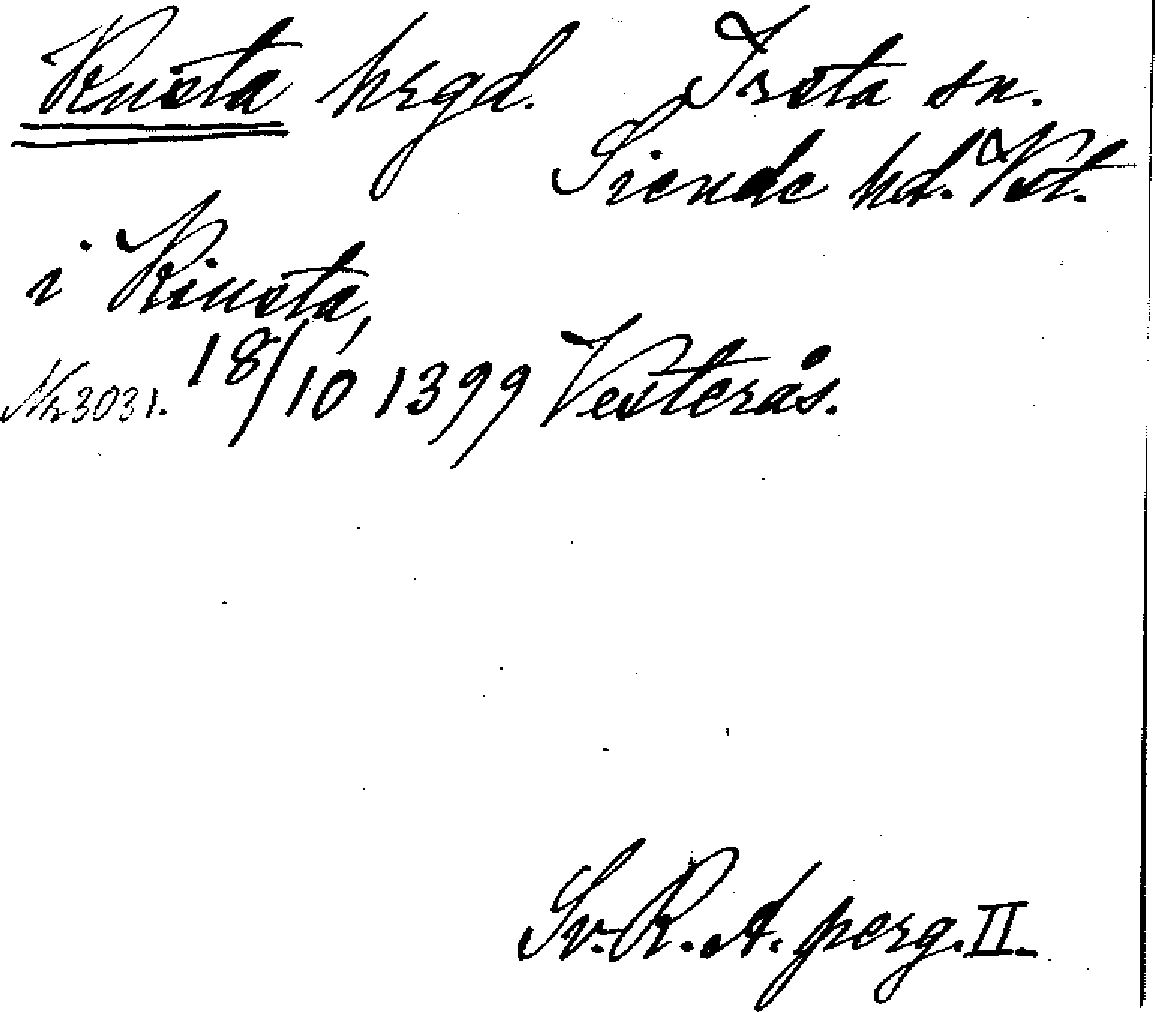 Kusta hrgd. Irsta sn.
Siende hd. Vstl.
i Riusta,
Nr 3031. 18/10 1399 Vesterås.
Sv. R. A. perg. II.